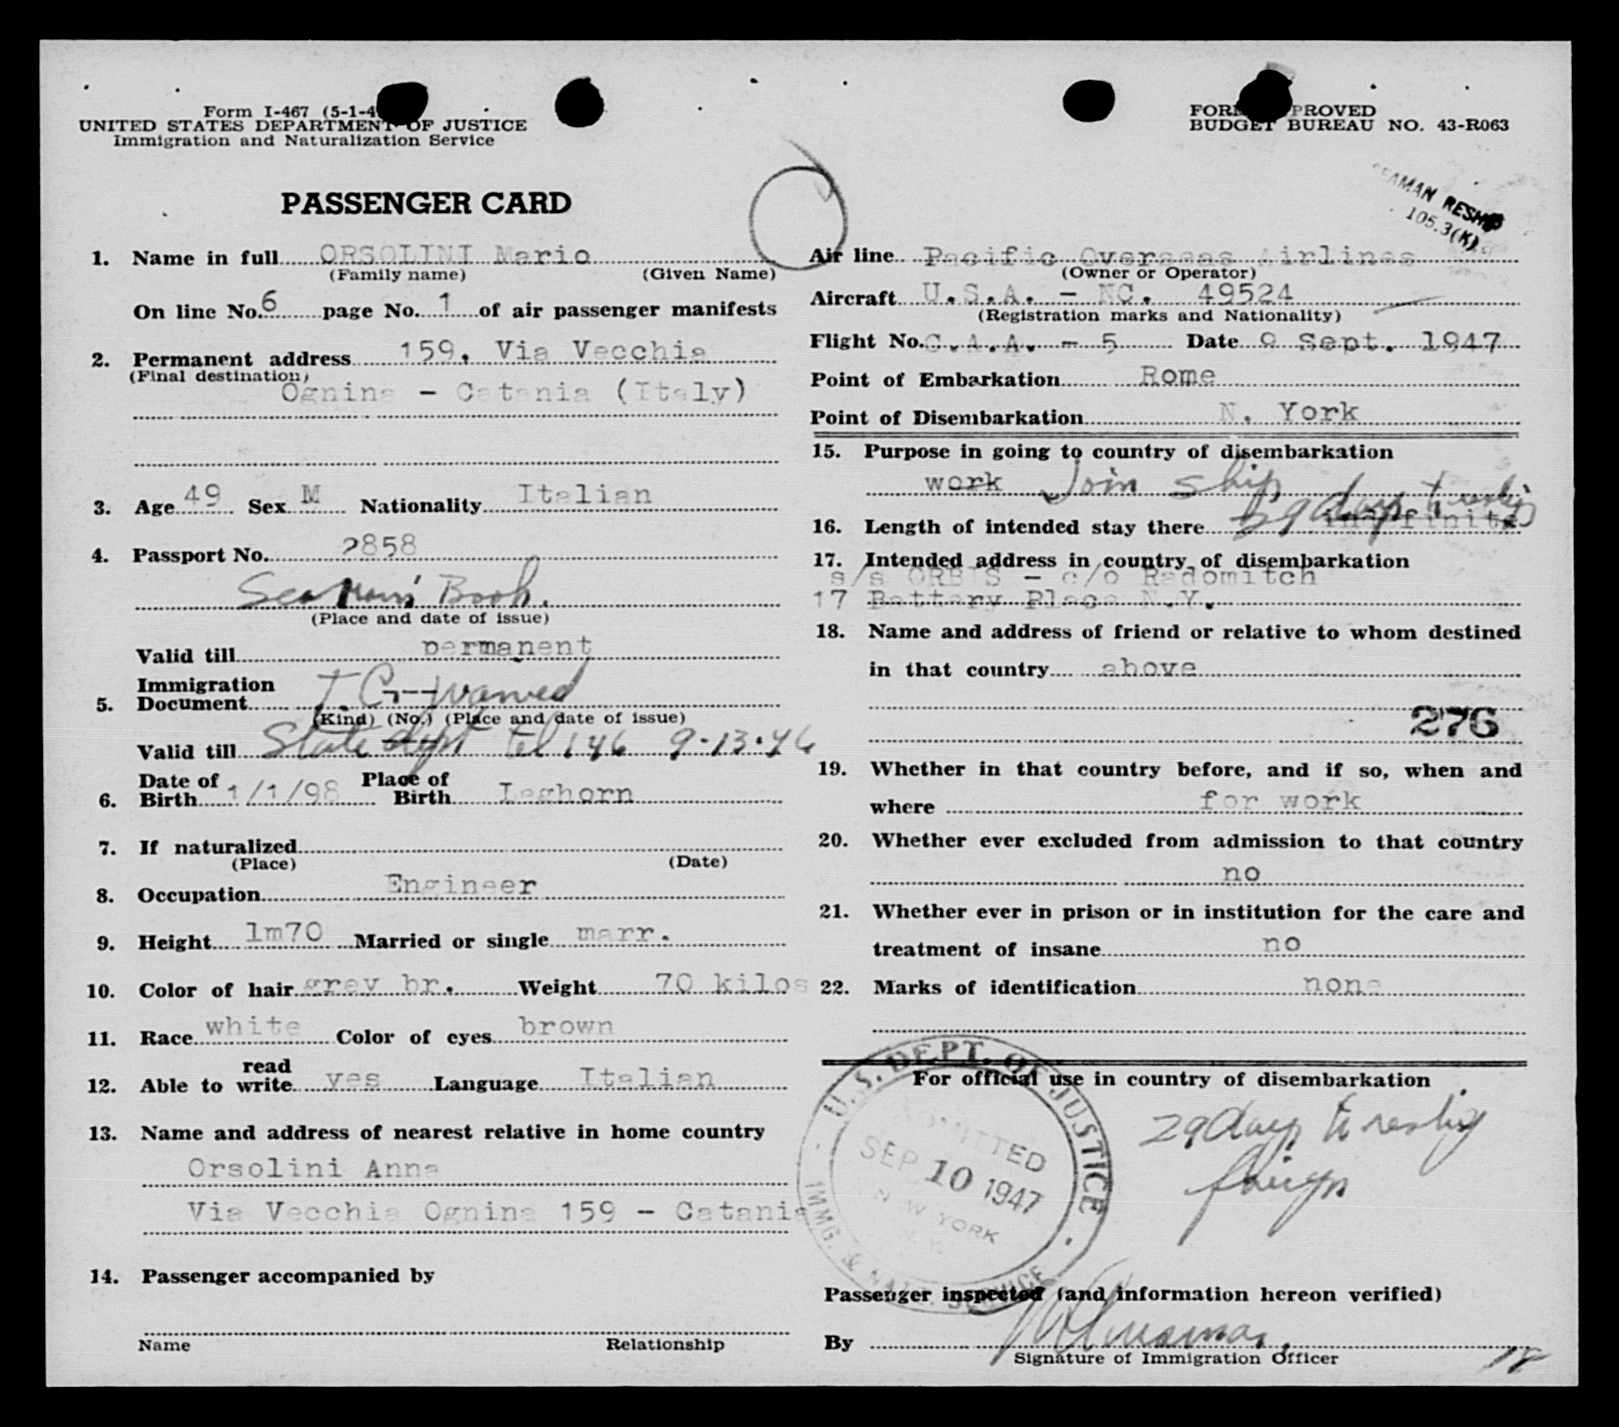 Form I-467 (5-1-4
UNITED STATES DEPARTMENT OF JUSTICE
Immigration and Naturalization Service
FORM APPROVED
BUDGET BUREAU NO. 43-R063
PASSENGER CARD
SEAMAN RESHIP
105.3(K)
1. Name in full ORSOLINI Mario
(Family name) (Given Name)
On line No. 6 page No. 1 of air passenger manifests
2. Permanent address 159, Via Vecchia
(Final destination)
Ognina - Catania (Italy)
3. Age 49 Sex M Nationality Italian
4. Passport No. 2858
Seaman's Book.
(Place and date of issue)
Valid till permanent
5. Immigration Document T.C. waived
(Kind) (No.) (Place and date of issue)
Valid till State dept tel 146 9-13-46
6. Date of Birth 1/1/98 Place of Birth Leghorn
7. If naturalized
(Place) (Date)
8. Occupation Engineer
9. Height 1m70 Married or single marr.
10. Color of hair grey br. Weight 70 kilos
11. Race white Color of eyes brown
12. Able to read write yes Language Italian
13. Name and address of nearest relative in home country
Orsolini Anna
Via Vecchia Ognina 159 - Catania
14. Passenger accompanied by
Name Relationship
Air line Pacific Overseas Airlines
(Owner or Operator)
Aircraft U.S.A. - NC. 49524
(Registration marks and Nationality)
Flight No. C.A.A. - 5 Date 9 Sept. 1947
Point of Embarkation Rome
Point of Disembarkation N. York
15. Purpose in going to country of disembarkation
work Join ship
16. Length of intended stay there 29 days to reship indefinite
17. Intended address in country of disembarkation
s/s ORBIS - c/o Radomitch
17 Battery Place N.Y.
18. Name and address of friend or relative to whom destined
in that country above
276
19. Whether in that country before, and if so, when and
where for work
20. Whether ever excluded from admission to that country
no
21. Whether ever in prison or in institution for the care and
treatment of insane no
22. Marks of identification none
For official use in country of disembarkation
29 days to reship
foreign
U.S. DEPT. OF JUSTICE
ADMITTED
SEP 10 1947
NEW YORK
IMMG. & NATZ. SERVICE
Passenger inspected (and information hereon verified)
By
Signature of Immigration Officer